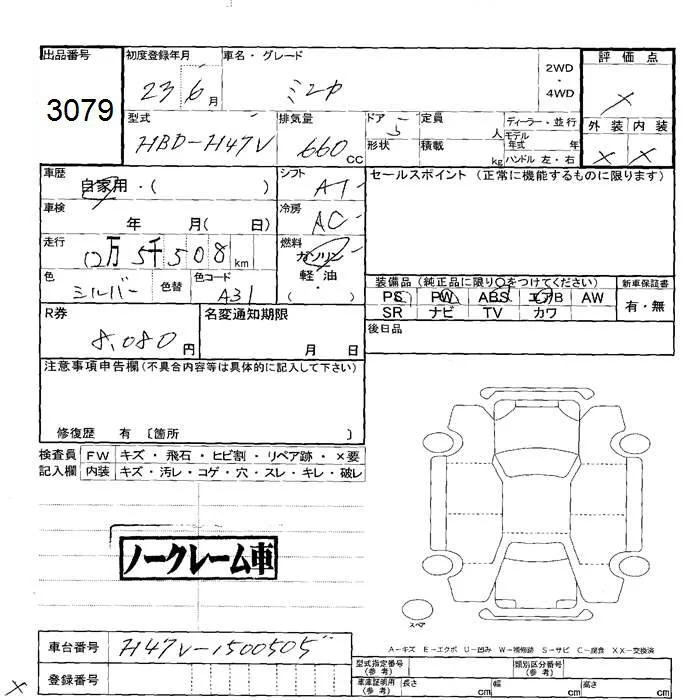 出品番号
3079
初度登録年月
23 6月
車名・グレード
ミニカ
2WD・4WD
評価点
×
外装 内装
× ×
型式
HBD-H47V
排気量
660cc
ドア
5
形状
定員
人
積載
kg
ディーラー・並行
モデル年式 年
ハンドル 左・右
車歴
自家用・( )
シフト
AT
セールスポイント (正常に機能するものに限ります)
車検
年 月( 日)
冷房
AC
走行
12万5千508km
燃料
ガソリン・軽油
( )
色
シルバー
色替
色コード
A31
装備品(純正品に限り○をつけてください)
新車保証書
PS PW ABS エアB AW
有・無
SR ナビ TV カワ
R券
8,080円
名変通知期限
月 日
後日品
注意事項申告欄(不具合内容等は具体的に記入して下さい)
修復歴 有 〔箇所 〕
検査員記入欄
FW キズ・飛石・ヒビ割・リペア跡・×要
内装 キズ・汚レ・コゲ・穴・スレ・キレ・破レ
ノークレーム車
スペア
車台番号
H47V-1500505
A-キズ E-エクボ U-凹み W-補修跡 S-サビ C-腐食 XX-交換済
登録番号
型式指定番号(参考)
類別区分番号(参考)
車庫証明用(参考) 長さ cm 幅 cm 高さ cm
×